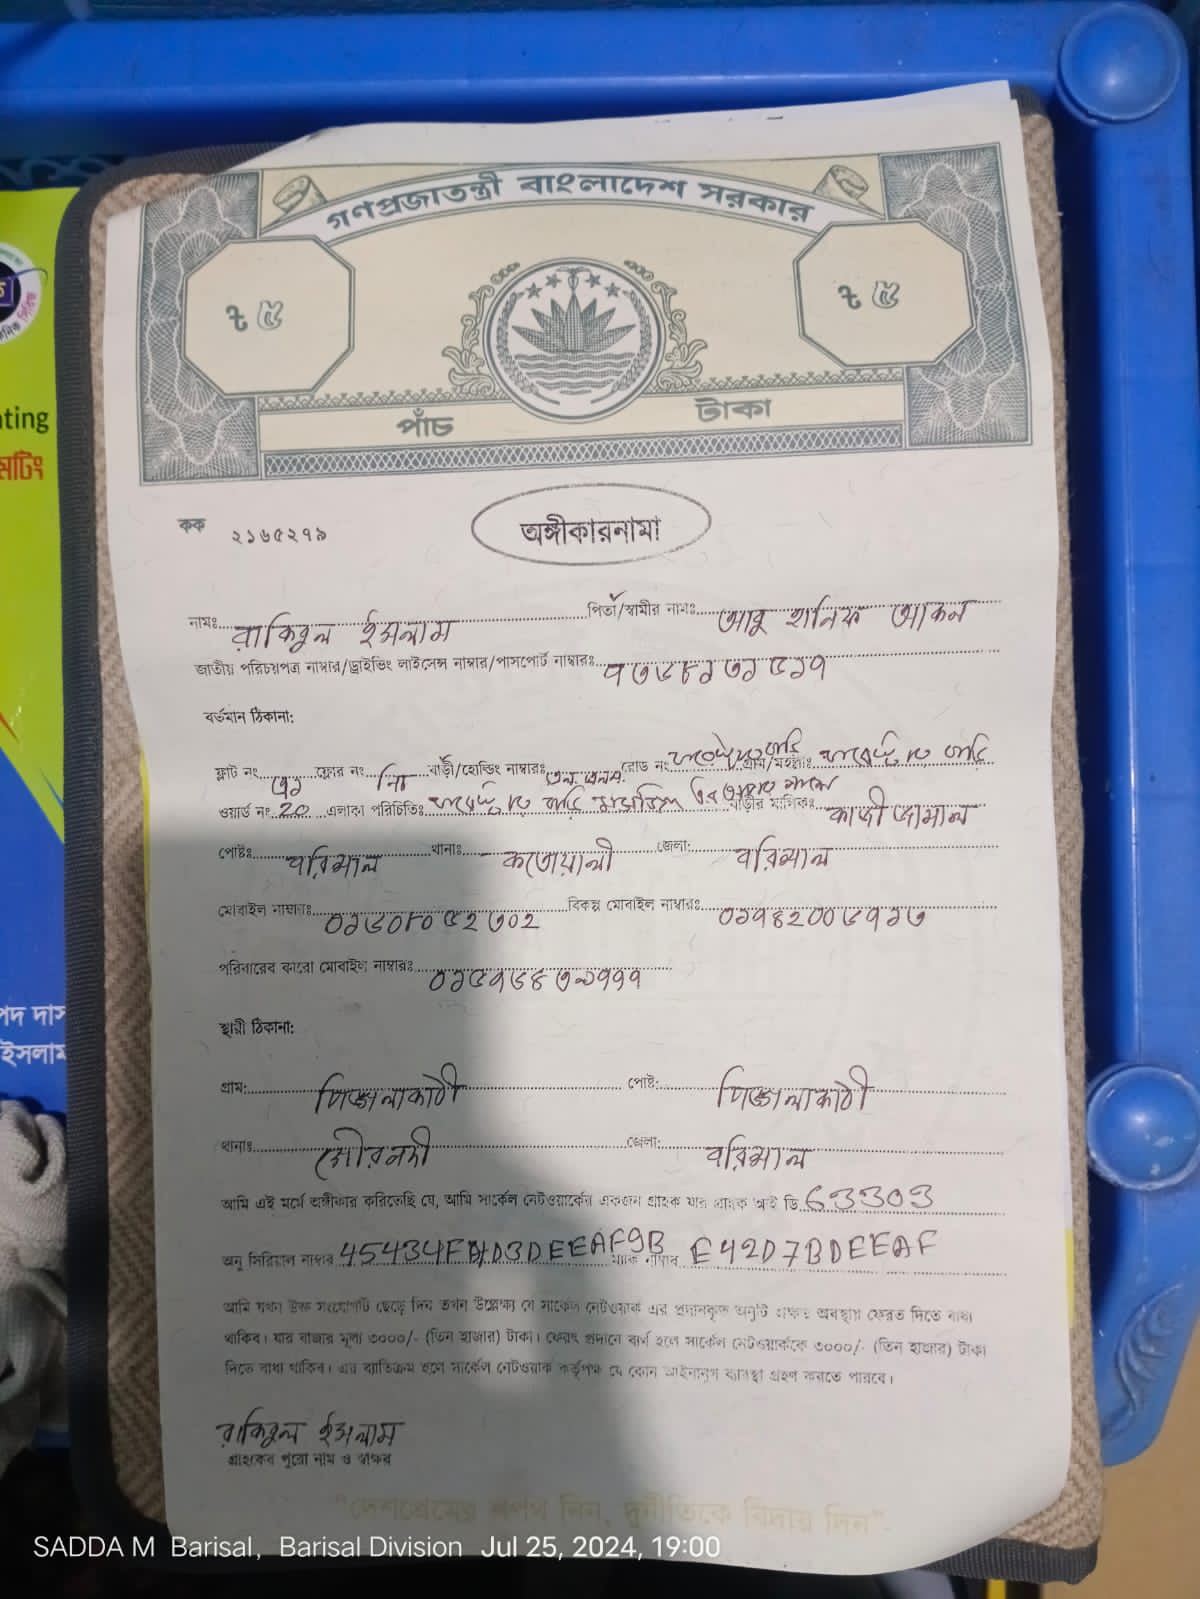 গণপ্রজাতন্ত্রী বাংলাদেশ সরকার
৳ ৫
৳ ৫
পাঁচ টাকা
কক ২১৬৫২৭৯
অঙ্গীকারনামা
নামঃ রাকিবুল ইসলাম পিতা/স্বামীর নামঃ আবু হানিফ আকন
জাতীয় পরিচয়পত্র নাম্বার/ড্রাইভিং লাইসেন্স নাম্বার/পাসপোর্ট নাম্বারঃ ৭৩৬৮১৩১৫১৭
বর্তমান ঠিকানা:
ফ্লাট নং ফ্লোর নং নিচ বাড়ী/হোল্ডিং নাম্বারঃ রোড নং গ্রাম/মহল্লাঃ
ওয়ার্ড নং 20 এলাকা পরিচিতিঃ বাড়ীর মালিকঃ কাজী জামাল
পোষ্টঃ বরিশাল থানাঃ কতোয়ালী জেলা: বরিশাল
মোবাইল নাম্বারঃ ০১৬০৮০৫২৩০২ বিকল্প মোবাইল নাম্বারঃ ০১৭৪২০০৬৭১৩
পরিবারের কারো মোবাইল নাম্বারঃ ০১৫৭৬৪৩৯৭৭৭
স্থায়ী ঠিকানা:
গ্রাম: পিঙ্গলাকাঠী পোষ্ট: পিঙ্গলাকাঠী
থানাঃ গৌরনদী জেলা: বরিশাল
আমি এই মর্মে অঙ্গীকার করিতেছি যে, আমি সার্কেল নেটওয়ার্কের একজন গ্রাহক যার গ্রাহক আই ডি 63303
অনু সিরিয়াল নাম্বার ম্যাক নাম্বার E42D7BDEEAF
আমি যখন উক্ত সংযোগটি ছেড়ে দিব তখন উল্লেখ্য যে সার্কেল নেটওয়ার্ক এর প্রদানকৃত অনুটি অক্ষত অবস্থায় ফেরত দিতে বাধ্য
থাকিব। যার বাজার মূল্য ৩০০০/- (তিন হাজার) টাকা। ফেরৎ প্রদানে ব্যর্থ হলে সার্কেল নেটওয়ার্ককে ৩০০০/- (তিন হাজার) টাকা
দিতে বাধ্য থাকিব। এর ব্যতিক্রম হলে সার্কেল নেটওয়ার্ক কর্তৃপক্ষ যে কোন আইনানুগ ব্যবস্থা গ্রহণ করতে পারবে।
রাকিবুল ইসলাম
গ্রাহকের পুরো নাম ও স্বাক্ষর
"দেশপ্রেমের শপথ নিন, দুর্নীতিকে বিদায় দিন"
SADDA M Barisal, Barisal Division Jul 25, 2024, 19:00
ating
মেটিং
পদ দাস
ইসলাম